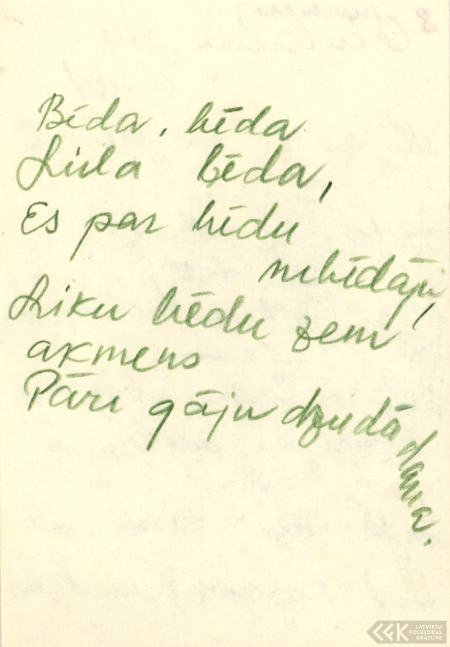 Bēda, bēda
Liela bēda,
Es par bēdu
nebēdāju,
Liku bēdu zem
akmens
Pāri gāju dziedādama.
LATVIEŠU
FOLKLORAS
KRĀTUVE